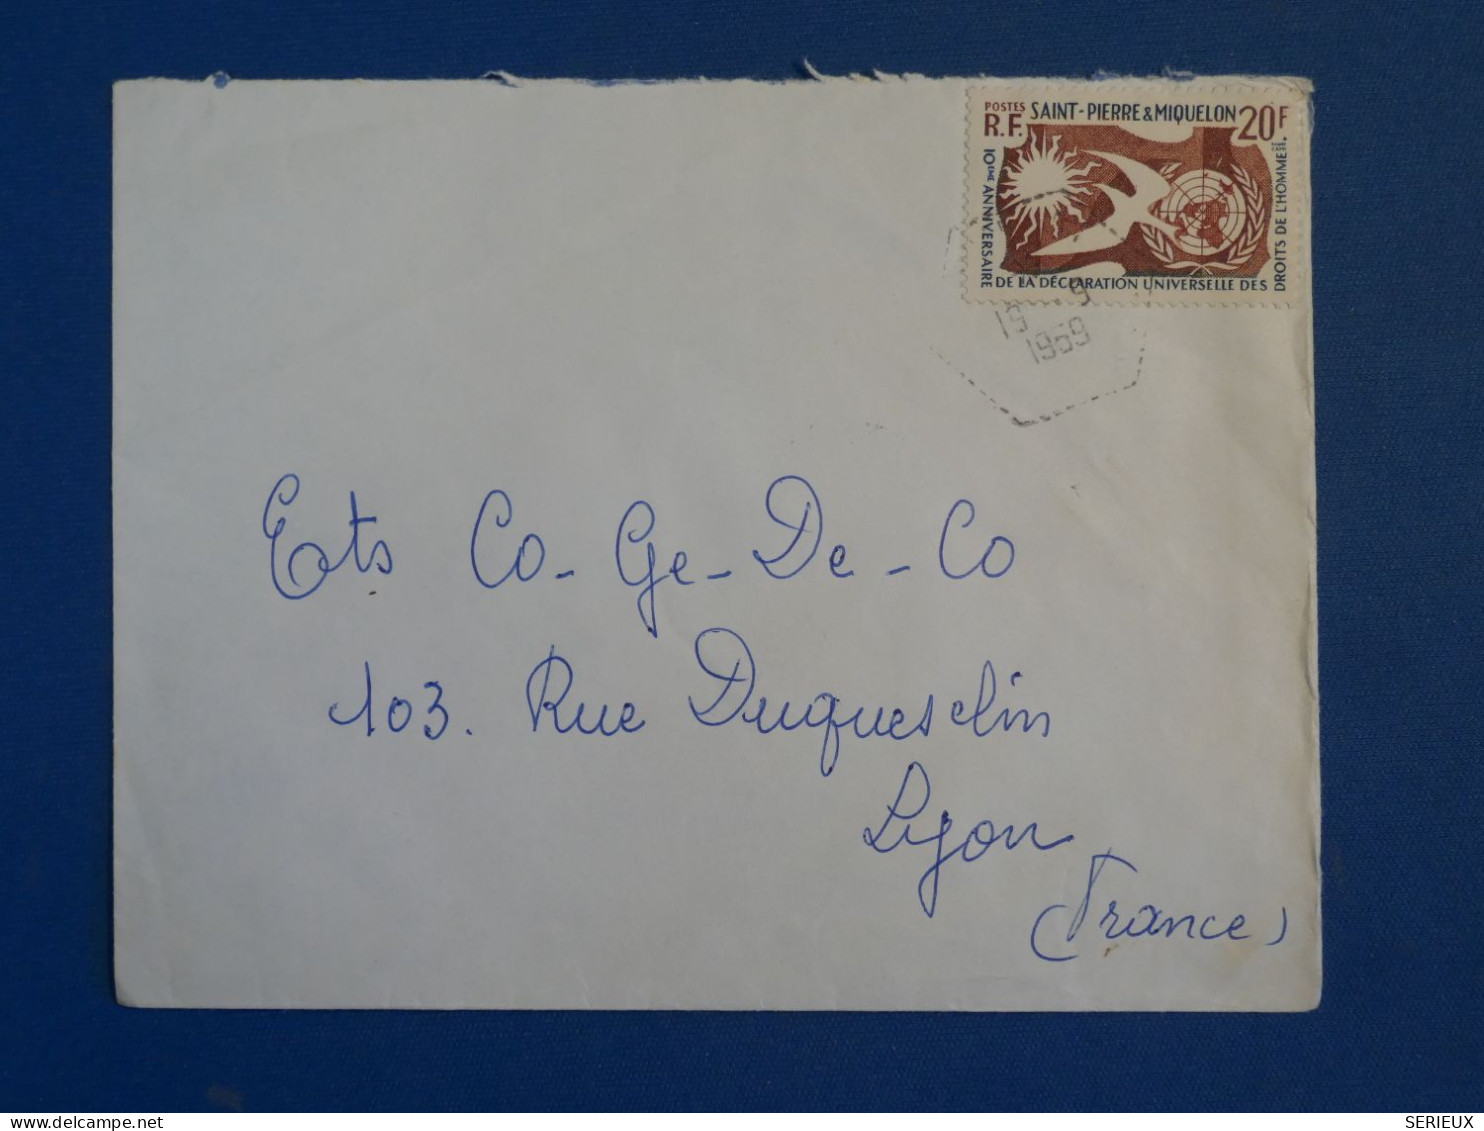 POSTES SAINT-PIERRE & MIQUELON 20F
R.F.
10ÈME ANNIVERSAIRE
DE LA DÉCLARATION UNIVERSELLE DES
DROITS DE L'HOMME
15 9
1959
Ets Co-Ge-De-Co
103. Rue Duquesclin
Lyon
(France)
SERIEUX